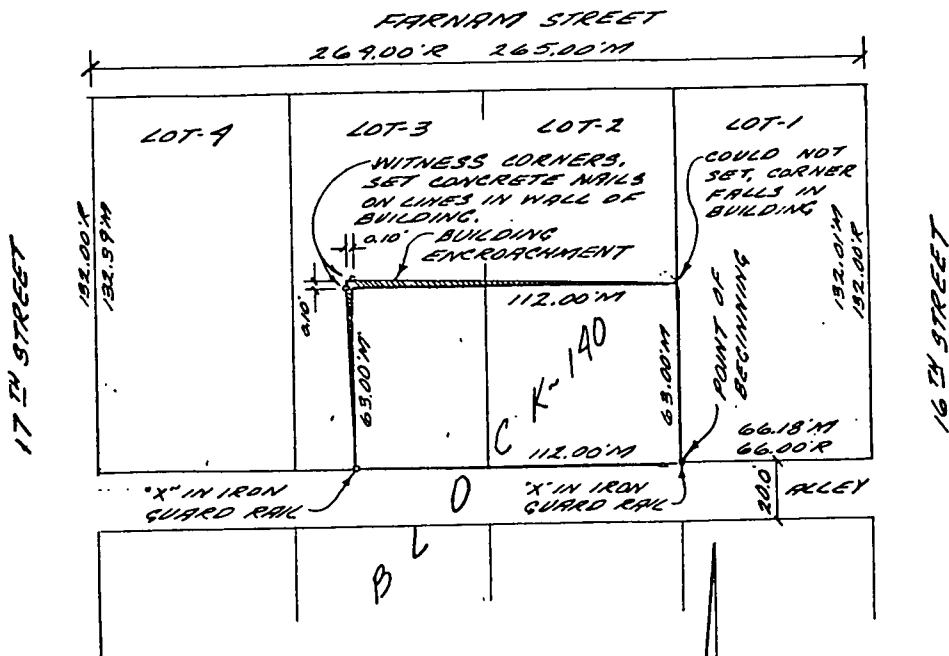 FARNAM STREET
264.00'R 265.00'M
LOT-4
LOT-3
LOT-2
LOT-1
WITNESS CORNERS,
SET CONCRETE NAILS
ON LINES IN WALL OF
BUILDING.
COULD NOT
SET, CORNER
FALLS IN
BUILDING
0.10'
BUILDING
ENCROACHMENT
132.00'R
132.39'M
132.01'M
132.00'R
17TH STREET
16TH STREET
0.10'
112.00'M
63.00'M
63.00'M
POINT OF
BEGINNING
BLOCK-140
112.00'M
66.18'M
66.00'R
"X" IN IRON
GUARD RAIL
"X" IN IRON
GUARD RAIL
20.0'
ALLEY